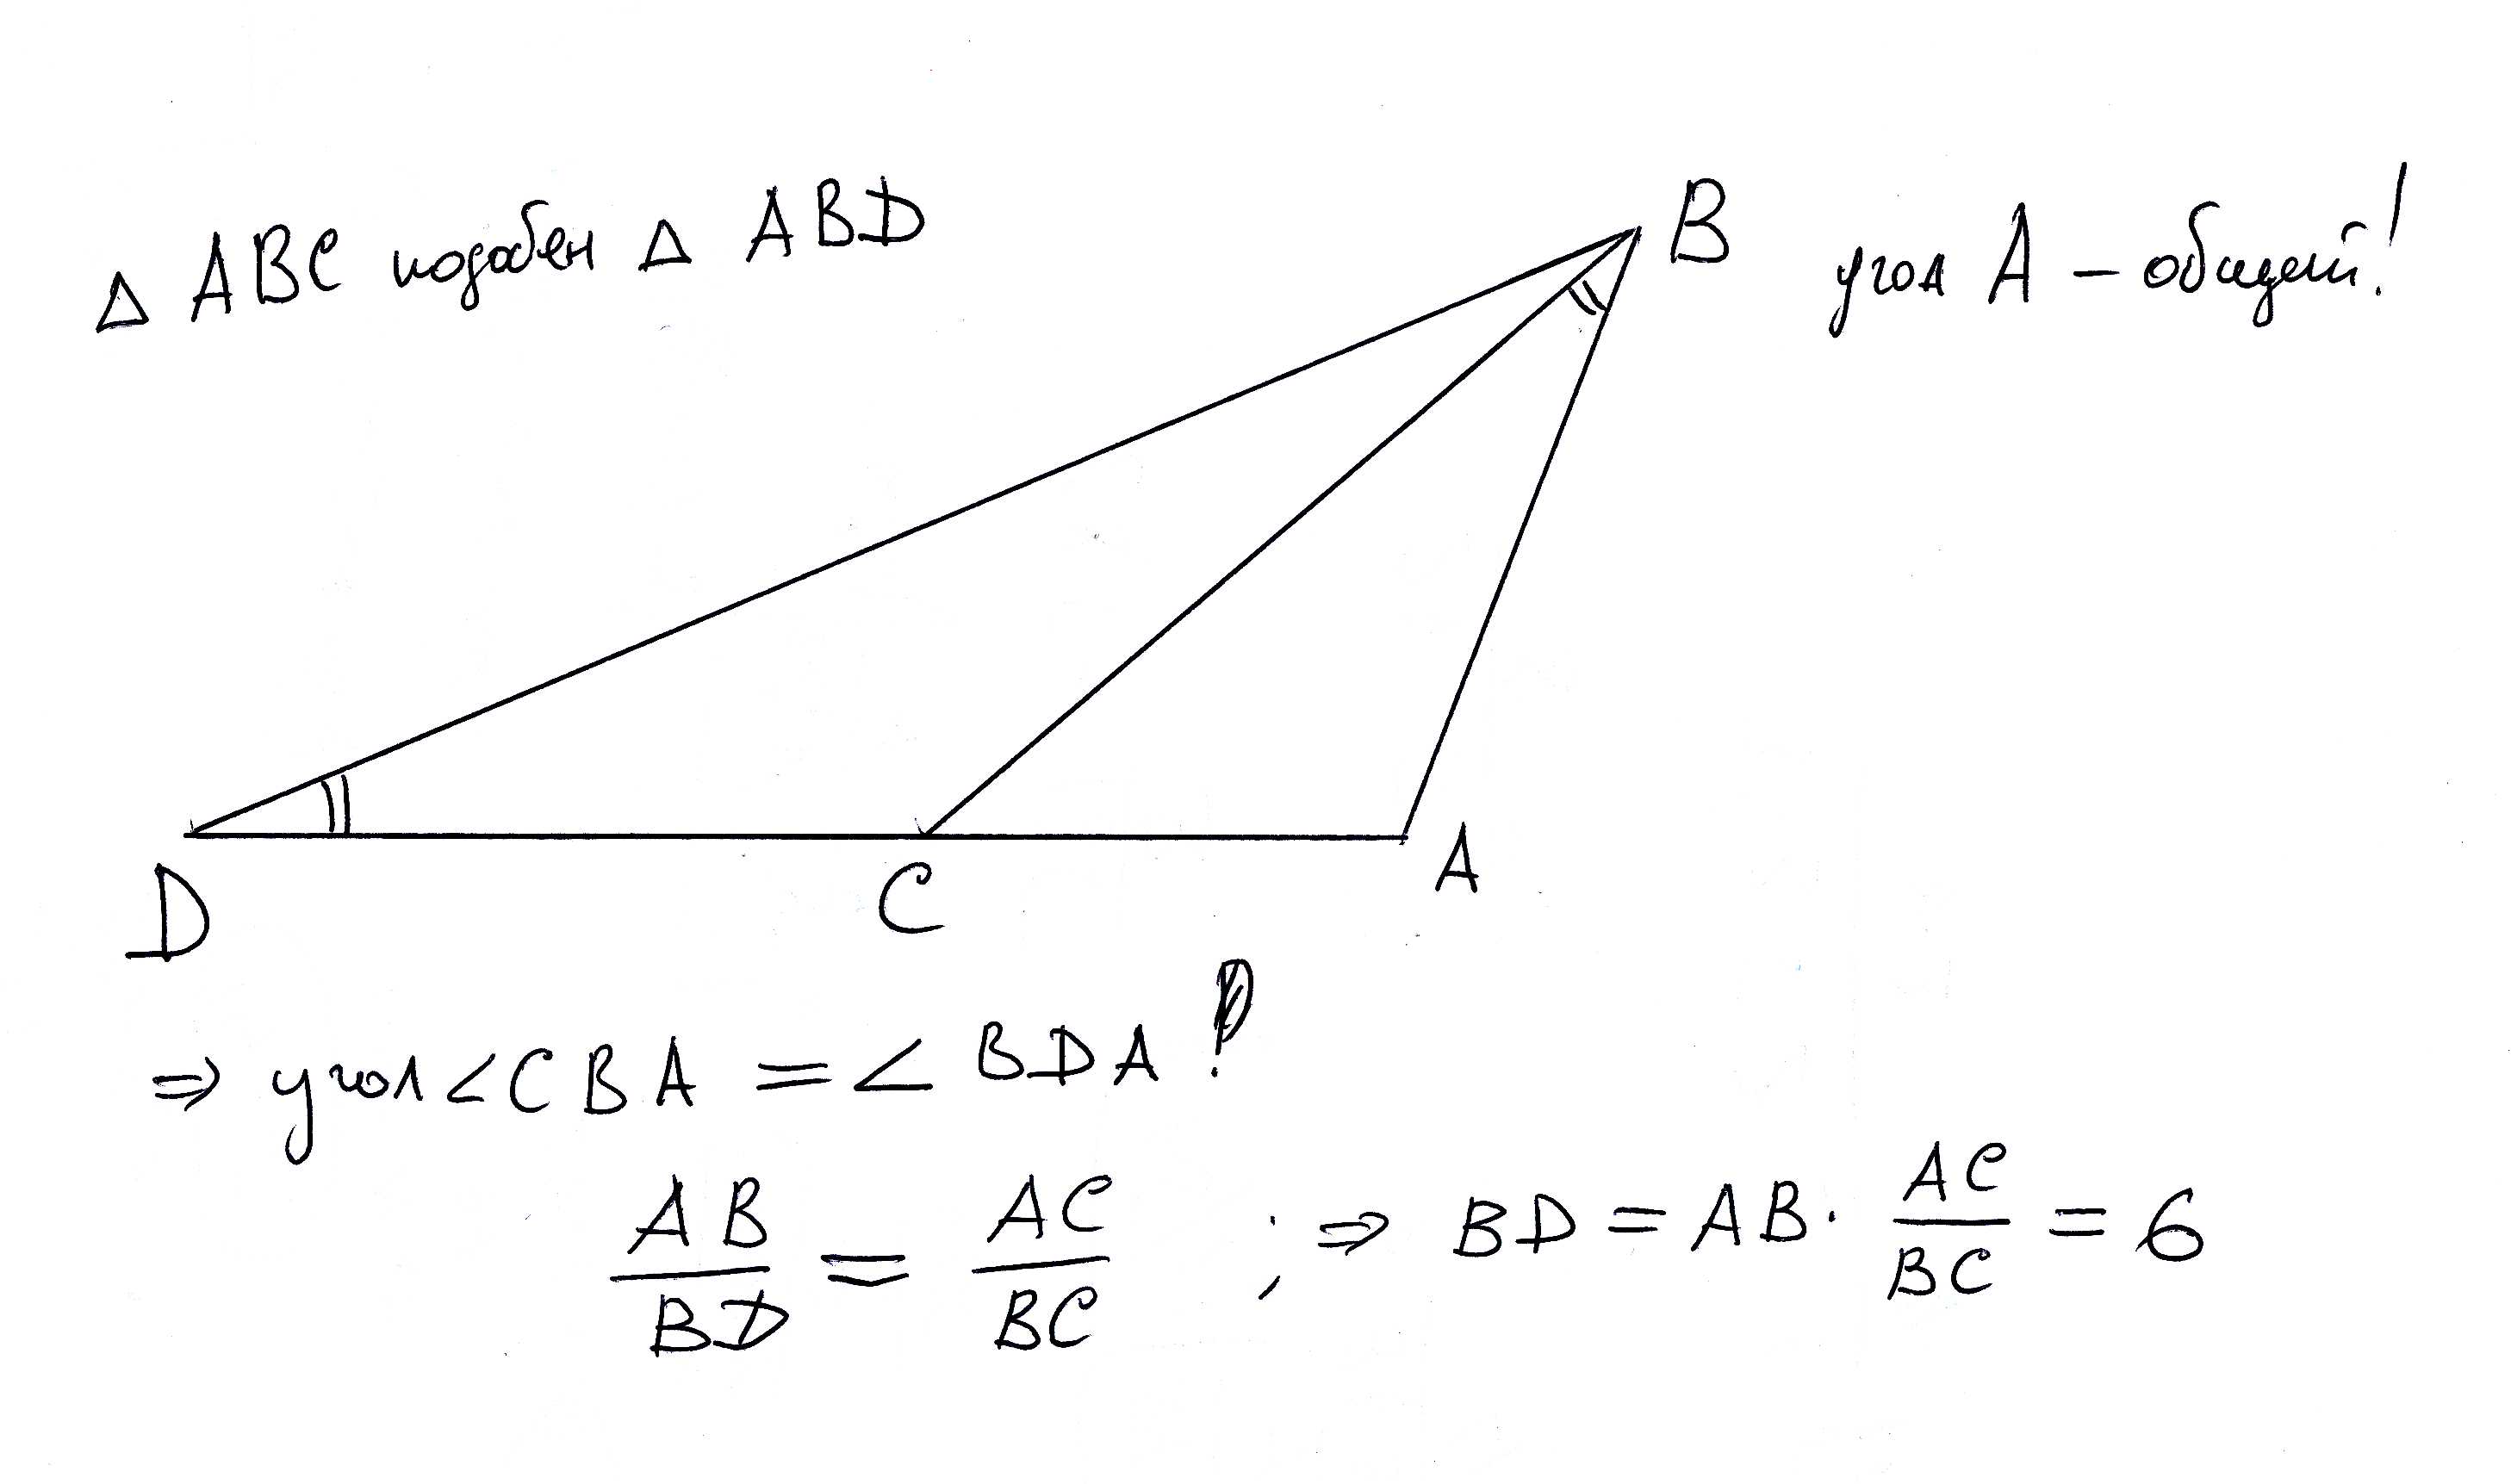 △ ABC подобен △ ABD
B угол A – общий!
D
C
A
⇒ угол < CBA = < BDA !
AB/BD = AC/BC ; ⇒ BD = AB · AC/BC = 6